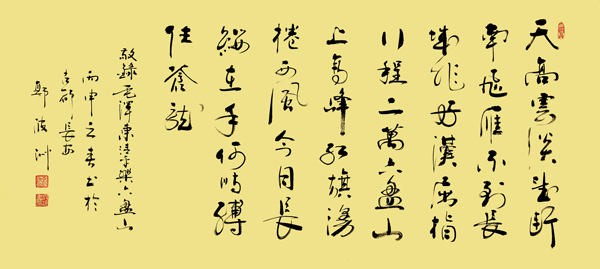 天高雲淡望斷
南飛雁不到長
城非好漢屈指
行程二萬六盤山
上高峰紅旗漫
捲西風今日長
纓在手何時縛
住蒼龍
敬錄毛澤東清平樂六盤山
丙申之春書於
古都長安
鄭波洲